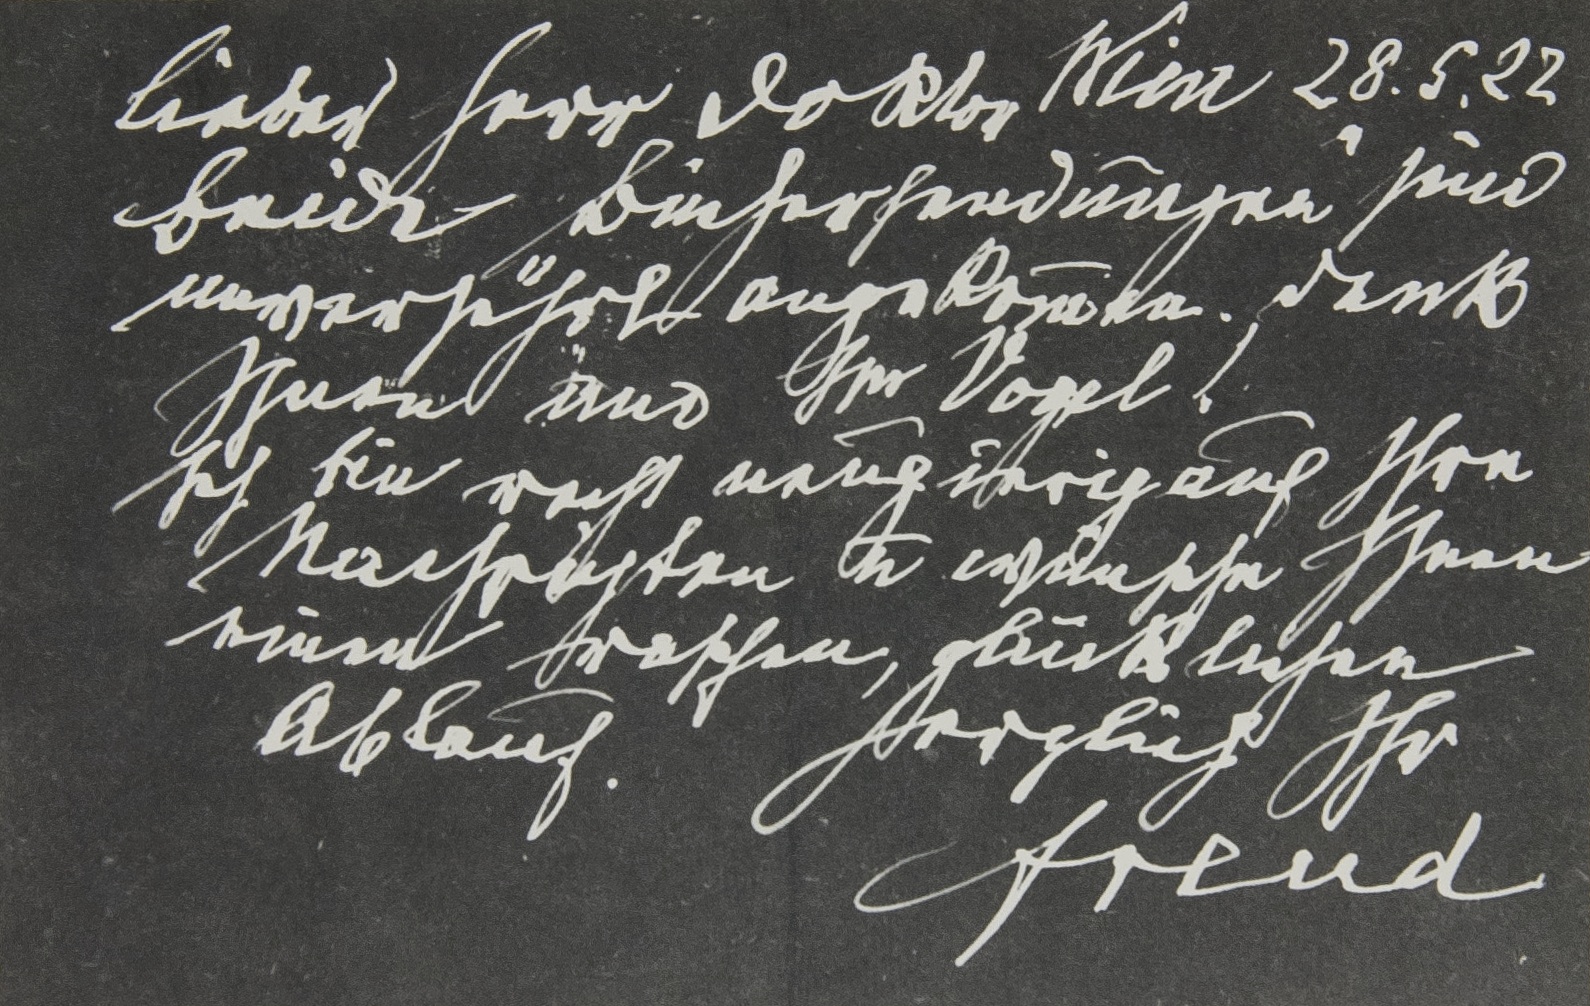 Lieber Herr Doktor Wien 28.5.22
Beide Büchersendungen sind
unversehrt angekom̄en. Dank
Ihnen und Vogel!
Ich bin recht neugierig auf Ihre
Nachrichten u wünsche Ihnen
einen raschen, glücklichen
Ablauf. Herzlich Ihr
Freud